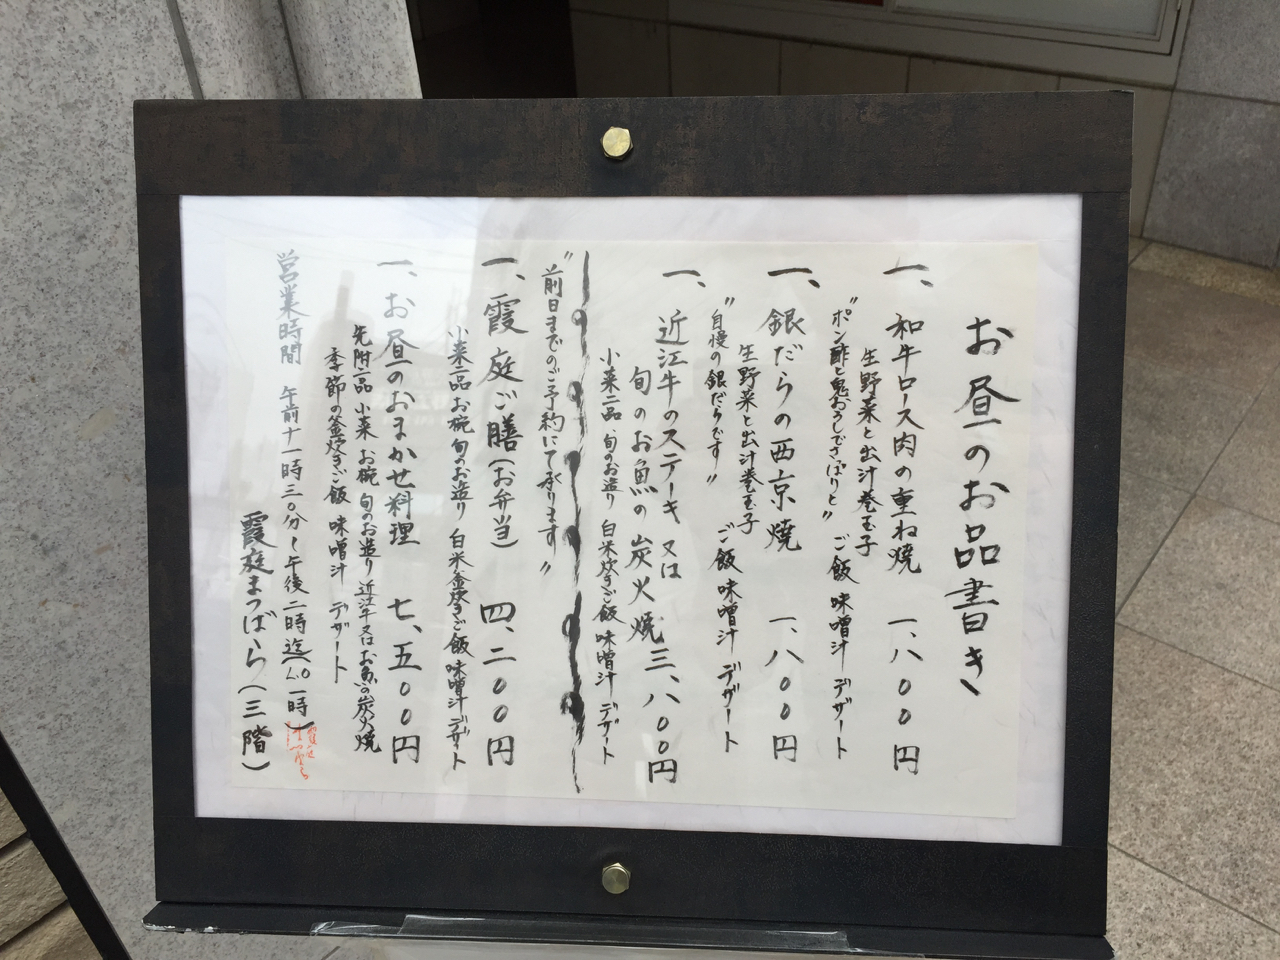 お昼のお品書き
一、和牛ロース肉の重ね焼 一、八〇〇円
生野菜と出汁巻玉子
"ポン酢と鬼おろしでさっぱりと" ご飯 味噌汁 デザート
一、銀だらの西京焼 一、八〇〇円
生野菜と出汁巻玉子
"自慢の銀だらです" ご飯 味噌汁 デザート
一、近江牛のステーキ 又は
旬のお魚の炭火焼 三、八〇〇円
小菜二品 旬のお造り 白米炊きご飯 味噌汁 デザート
"前日までのご予約にて承ります"
一、霞庭ご膳(お弁当) 四、二〇〇円
小菜二品 お椀 旬のお造り 白米釜炊きご飯 味噌汁 デザート
一、お昼のおまかせ料理 七、五〇〇円
先附二品 小菜 お椀 旬のお造り 近江牛又はお魚の炭火焼
季節の釜炊きご飯 味噌汁 デザート
営業時間 午前十一時三〇分〜午後二時迄(L.O 一時)
霞庭まつばら(三階)